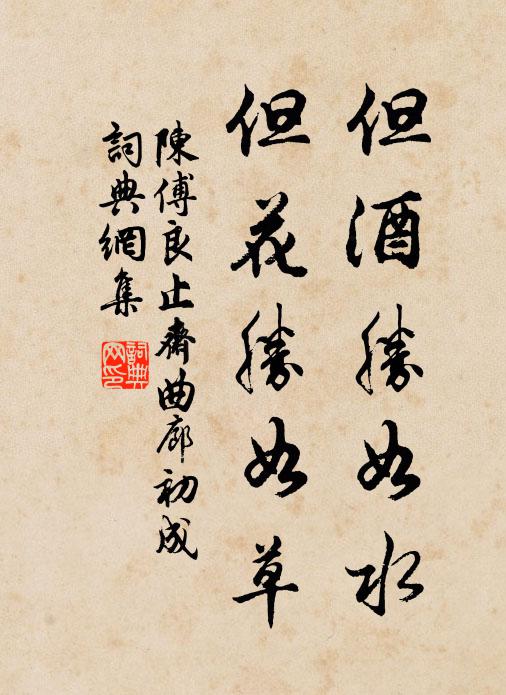 但酒勝如水
但花勝如草
陳傅良止齋曲廊初成
詞典網集
詞典网印